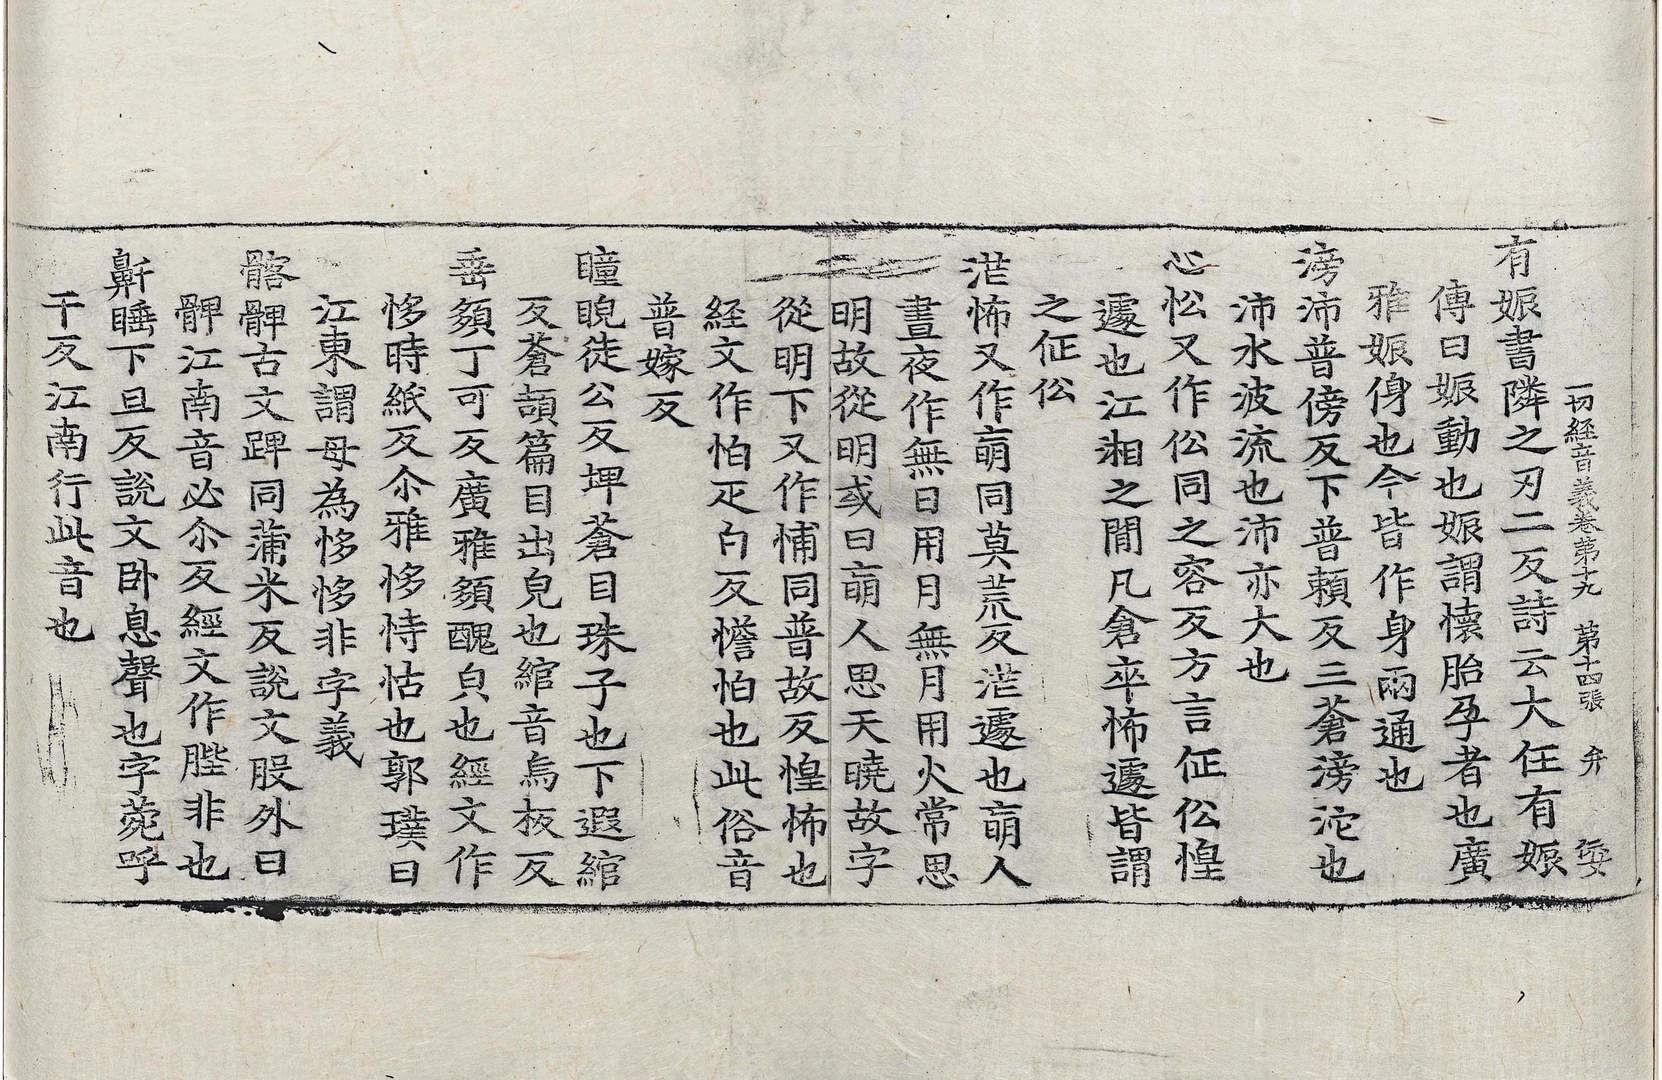 一切経音義卷第十九 第十四張 弁
有娠書隣之刃二反詩云大任有娠
傳曰娠動也娠謂懐胎孕者也廣
雅娠身也今皆作身兩通也
滂沛普傍反下普頼反三蒼滂沱也
沛水波流也沛亦大也
心忪又作伀同之容反方言征伀惶
遽也江湘之間凡倉卒怖遽皆謂
之征伀
茫怖又作𦕅同莫荒反茫遽也𦕅人
晝夜作無日用月無月用火常思
明故從明或曰𦕅人思天曉故字
從明下又作悑同普故反惶怖也
経文作怕疋白反憺怕也此俗音
普嫁反
瞳睨徒公反埤蒼目珠子也下遐綰
反蒼頡篇目出皃也綰音烏板反
垂頦丁可反廣雅頦醜皃也經文作
恀時紙反尒雅恀恃怙也郭璞曰
江東謂母為恀恀非字義
髂髀古文踔同蒲米反說文股外曰
髀江南音必尒反經文作䏶非也
鼾睡下旦反說文卧息聲也字菀呼
干反江南行此音也